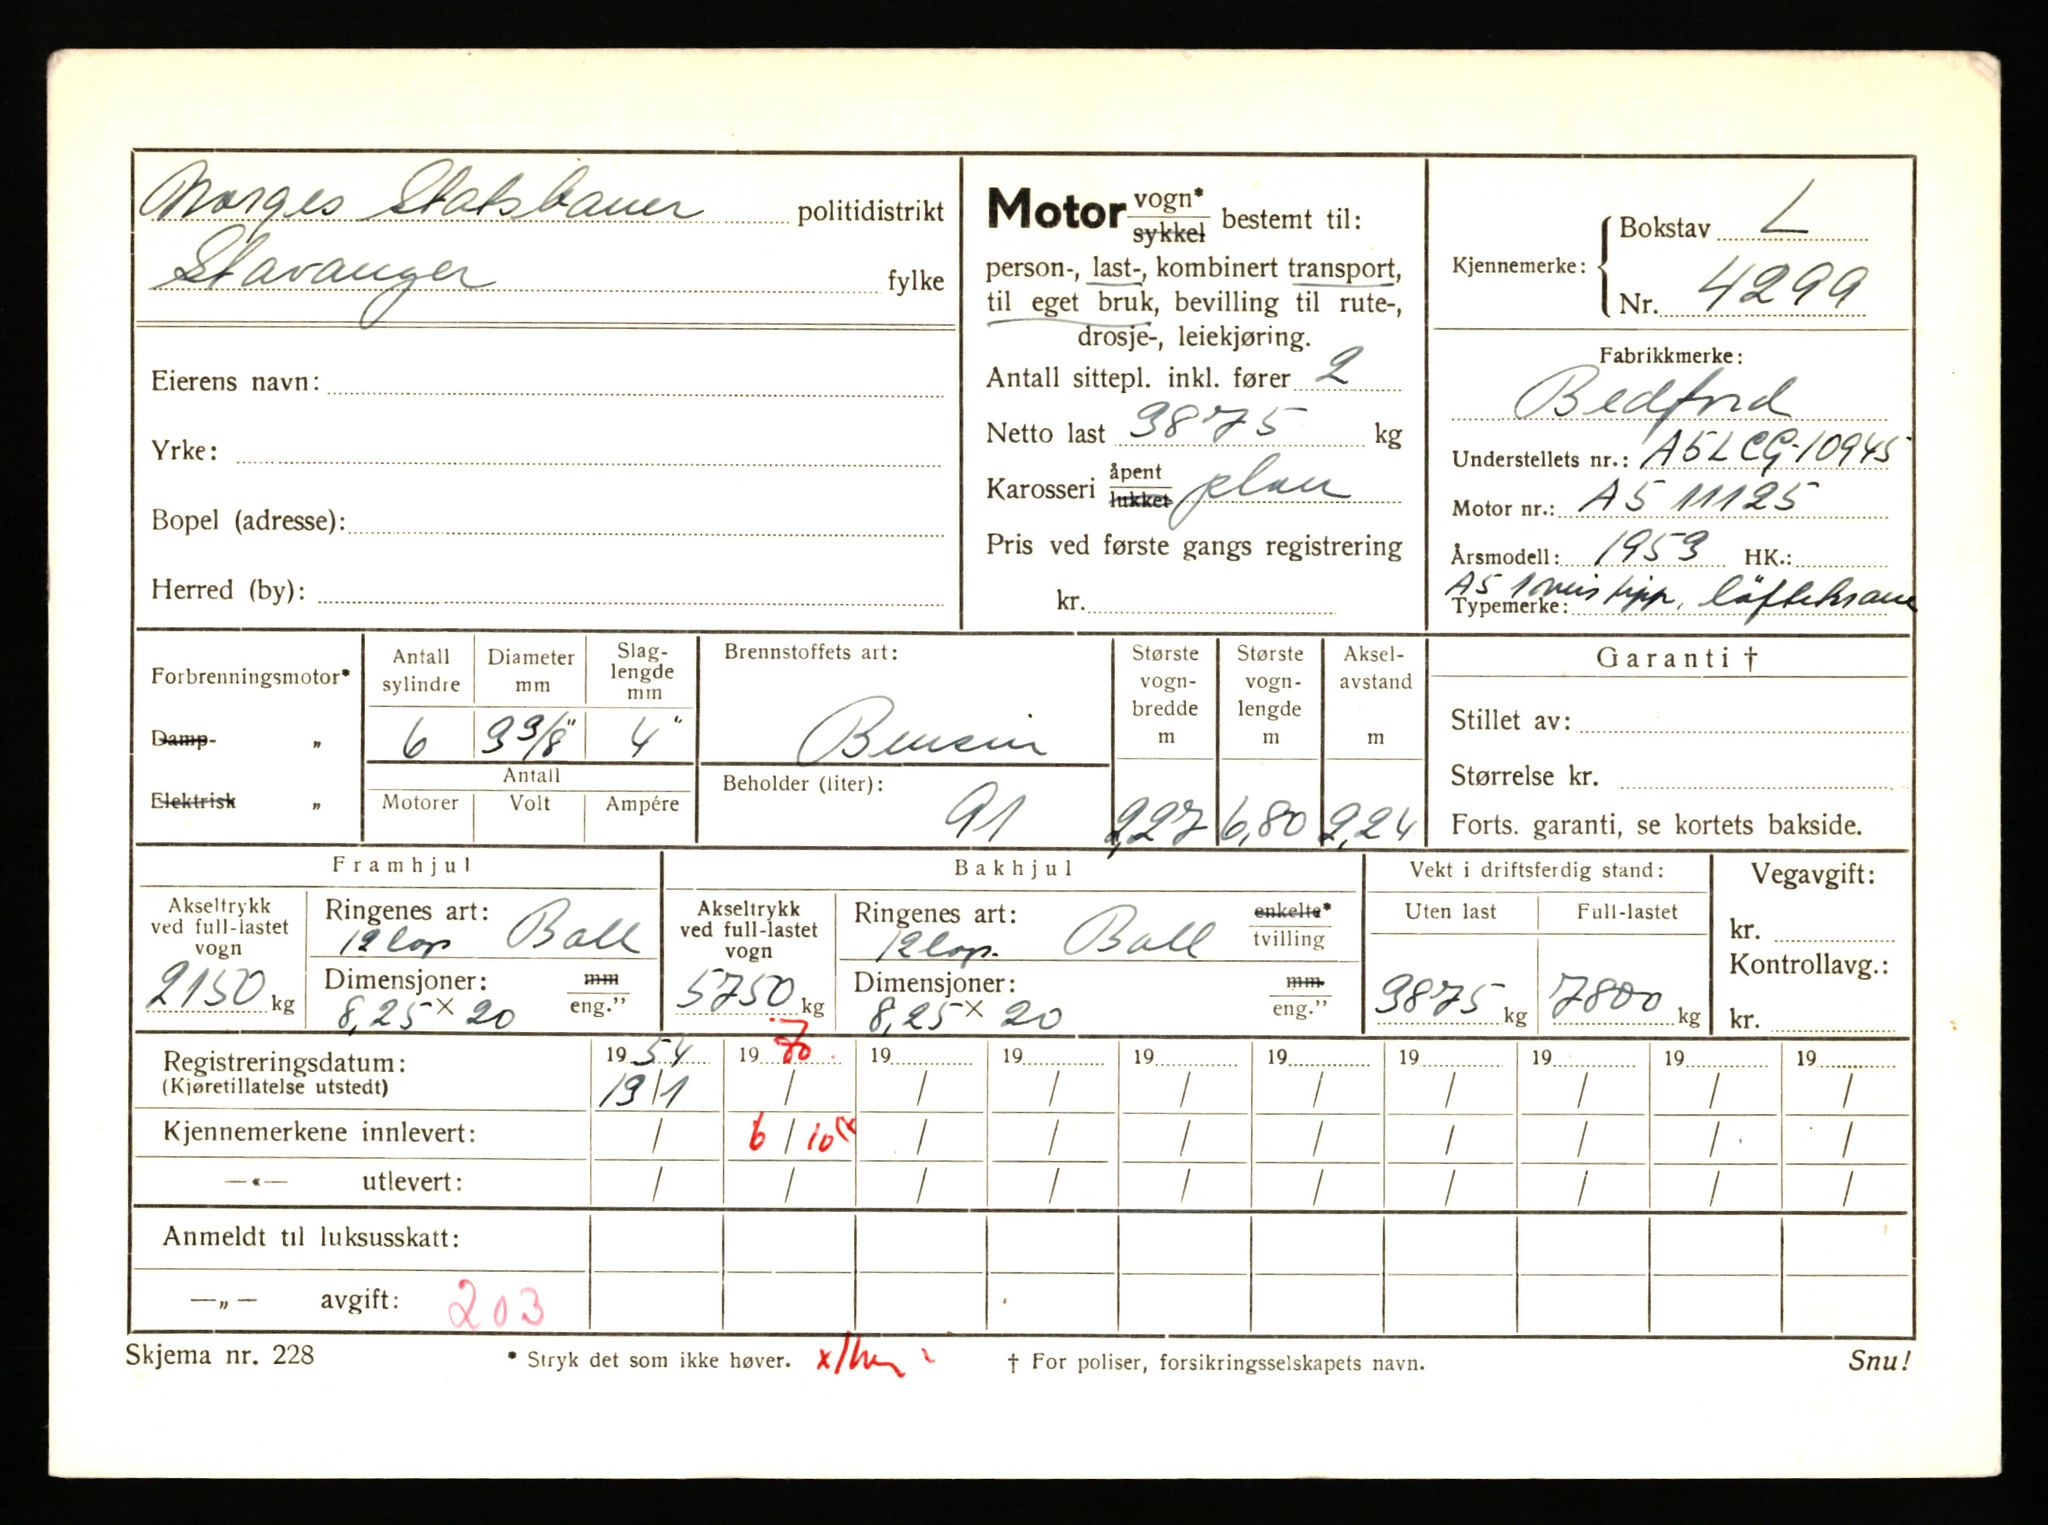 Norges Statsbaner politidistrikt
Stavanger fylke
Eierens navn:
Yrke:
Bopel (adresse):
Herred (by):
Motor vogn* sykkel bestemt til:
person-, last-, kombinert transport,
til eget bruk, bevilling til rute-,
drosje-, leiekjøring.
Antall sittepl. inkl. fører 2
Netto last 3875 kg
Karosseri åpent lukket plan
Pris ved første gangs registrering
kr.
Kjennemerke: Bokstav L
Nr. 4299
Fabrikkmerke:
Bedford
Understellets nr.: A5LCG-10945
Motor nr.: A5 11125
Årsmodell: 1953 HK.:
Typemerke: A5 tipp, løftekrane
Forbrenningsmotor*
Damp- „
Elektrisk „
Antall sylindre 6
Diameter mm 3 3/8"
Slag-lengde mm 4"
Antall
Motorer Volt Ampére
Brennstoffets art:
Bensin
Beholder (liter):
91
Største vogn-bredde m 2,27
Største vogn-lengde m 6,80
Aksel-avstand m 2,24
Garanti †
Stillet av:
Størrelse kr.
Forts. garanti, se kortets bakside.
Framhjul
Akseltrykk ved full-lastet vogn 2150 kg
Ringenes art: 12 lap. Ball
Dimensjoner: mm eng."
8,25 x 20
Bakhjul
Akseltrykk ved full-lastet vogn 5750 kg
Ringenes art: 12 lap. Ball enkelte* tvilling
Dimensjoner: mm eng."
8,25 x 20
Vekt i driftsferdig stand:
Uten last 3875 kg
Full-lastet 7800 kg
Vegavgift:
kr.
Kontrollavg.:
kr.
Registreringsdatum: 1954 1970 19 19 19 19 19 19 19 19
(Kjøretillatelse utstedt) 19/1 / / / / / / / / /
Kjennemerkene innlevert: / 6/10 / / / / / / / /
—«— utlevert: / / / / / / / / / /
Anmeldt til luksusskatt:
—„— avgift: 203
Skjema nr. 228 * Stryk det som ikke høver. † For poliser, forsikringsselskapets navn. Snu!